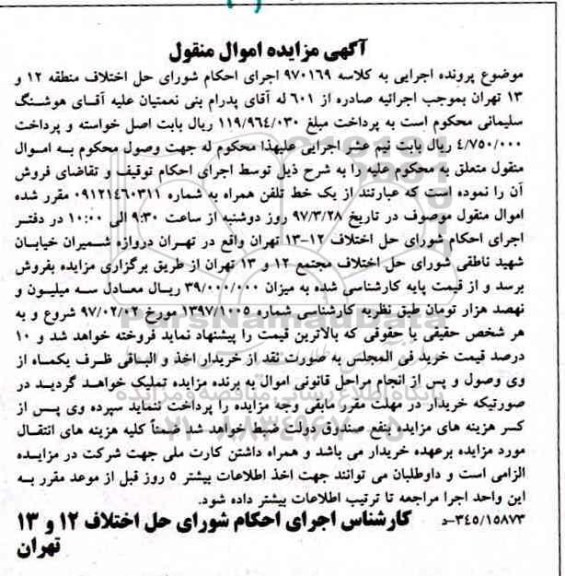 آگهی مزایده اموال منقول
موضوع پرونده اجرایی به کلاسه ۹۷۰۱۶۹ اجرای احکام شورای حل اختلاف منطقه ۱۲ و
۱۳ تهران بموجب اجرائیه صادره از ۶۰۱ له آقای پدرام بنی نعمتیان علیه آقـای هوشـنگ
سلیمانی محکوم است به پرداخت مبلغ ۱۱۹/۹۶۴/۰۳۰ ریال بابت اصل خواسته و پرداخت
۴/۷۵۰/۰۰۰ ریال بابت نیم عشر اجرایی علیهذا محکوم له جهت وصول محکوم بـه امـوال
منقول متعلق به محکوم علیه را به شرح ذیل توسط اجرای احکام توقیف و تقاضای فروش
آن را نموده است که عبارتند از یک خط تلفن همراه به شماره ۰۹۱۲۱۴۶۰۳۱۱ مقرر شده
اموال منقول موصوف در تاریخ ۹۷/۳/۲۸ روز دوشنبه از ساعت ۹:۳۰ الی ۱۰:۰۰ در دفتـر
اجرای احکام شورای حل اختلاف ۱۲-۱۳ تهران واقع در تهـران دروازه شـمیران خیابـان
شهید ناطقی شورای حل اختلاف مجتمع ۱۲ و ۱۳ تهران از طریق برگزاری مزایده بفروش
برسد و از قیمت پایه کارشناسی شده به میزان ۳۹/۰۰۰/۰۰۰ ریـال معـادل سـه میلیـون و
نهصد هزار تومان طبق نظریه کارشناسی شماره ۱۳۹۷/۱۰۰۵ مورخ ۹۷/۰۲/۰۲ شروع و به
هر شخص حقیقی یا حقوقی که بالاترین قیمت را پیشنهاد نماید فروخته خواهد شد و ۱۰
درصد قیمت خرید فی المجلس به صورت نقد از خریدار اخذ و البـاقی ظـرف یکمـاه از
وی وصول و پس از انجام مراحل قانونی اموال به برنده مزایده تملیک خواهـد گردیـد در
صورتیکه خریدار در مهلت مقرر مابقی وجه مزایده را پرداخت ننماید سپرده وی پـس از
کسر هزینه های مزایده بنفع صندوق دولت ضبط خواهد شد ضمناً کلیه هزینه های انتقـال
مورد مزایده برعهده خریدار می باشد و همراه داشتن کارت ملی جهت شرکت در مزایـده
الزامی است و داوطلبان می توانند جهت اخذ اطلاعات بیشتر ۵ روز قبل از موعد مقرر بـه
این واحد اجرا مراجعه تا ترتیب اطلاعات بیشتر داده شود.
۳۴۵/۱۵۸۷۳-د کارشناس اجرای احکام شورای حل اختلاف ۱۲ و ۱۳
تهران
ParsNamadData
پایگاه اطلاع رسانی مناقصه و مزایده
۰۲۱-۸۸۳۴۹۶۷۰-۵